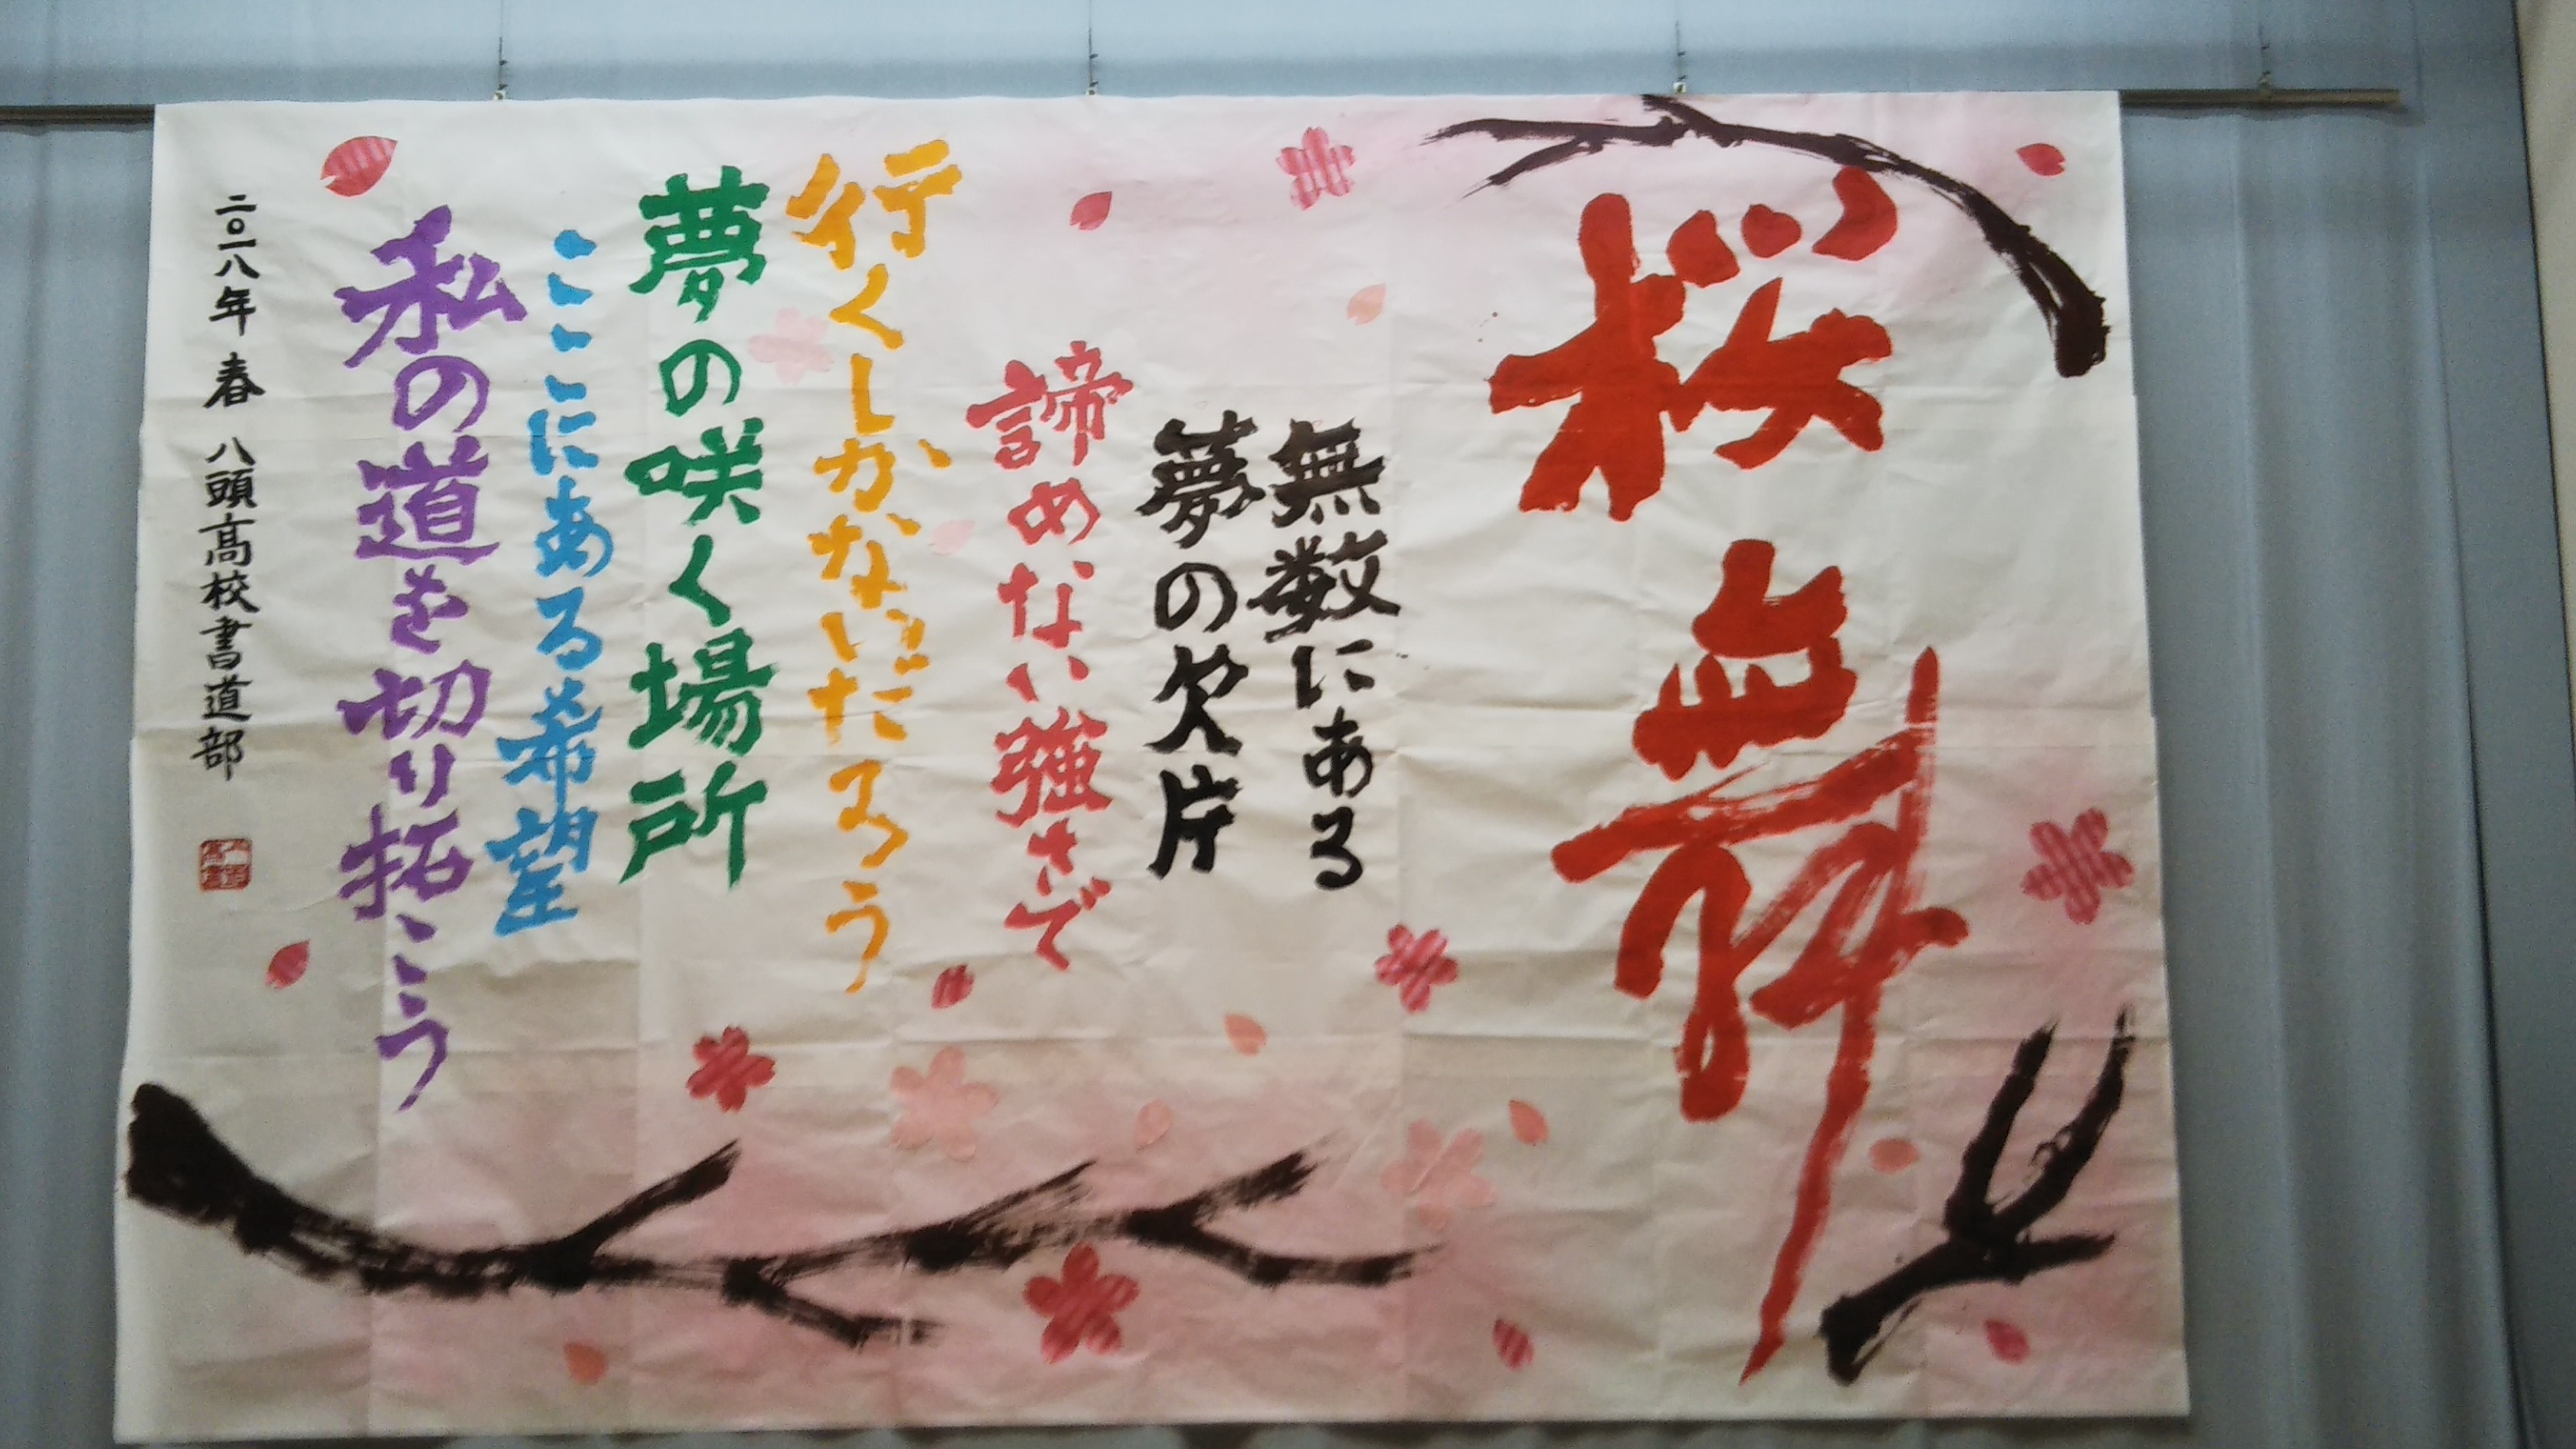 桜舞
無数にある
夢の欠片
諦めない強さで
行くしかないだろう
夢の咲く場所
ここにある希望
私の道を切り拓こう
二〇一八年 春 八頭高校書道部